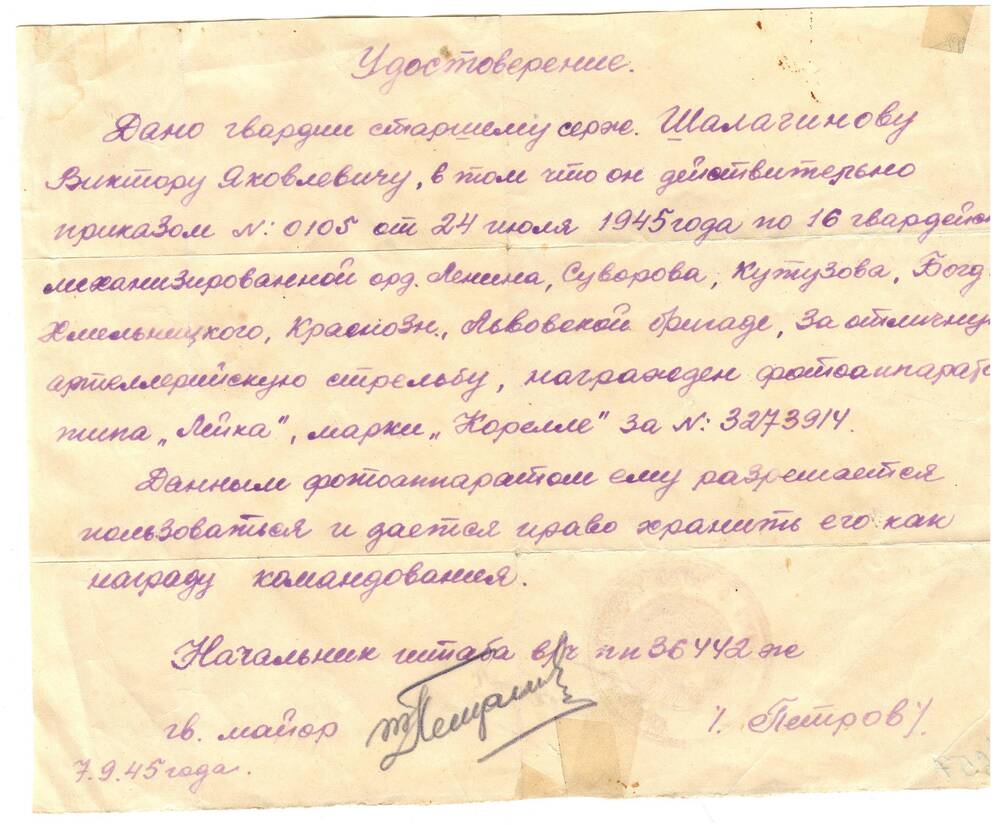 Удостоверение.
Дано гвардии старшему серж. Шалагинову
Виктору Яковлевичу, в том что он действительно
приказом №: 0105 от 24 июля 1945 года по 16 гвардейс
механизированной орд. Ленина, Суворова, Кутузова, Богд.
Хмельницкого, Краснозн., Львовской бригаде, за отличну
артеллерийскую стрельбу, награжден фотоаппарато
типа „Лейка", марки „Корелле" за №: 3273914.
Данным фотоаппаратом ему разрешается
пользоваться и дается право хранить его как
награду командования.
Начальник штаба в/ч пп 36442 ж
гв. майор /. Петров /.
7.9.45 года.